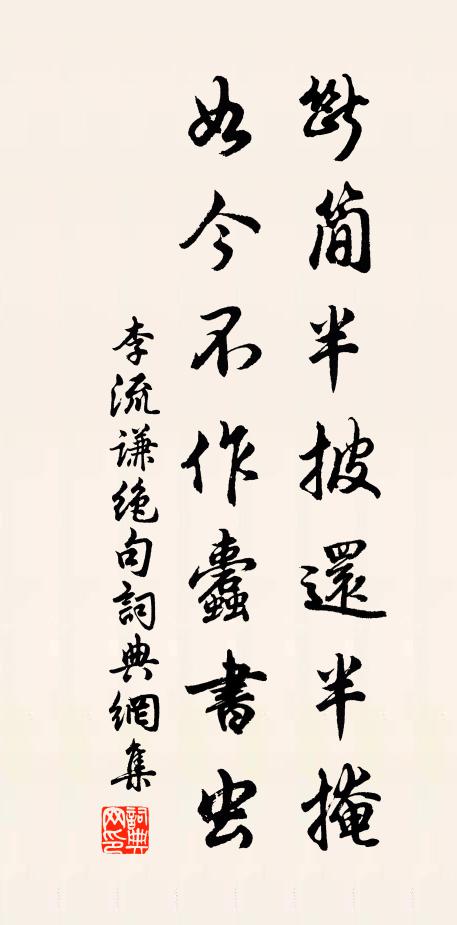 斷简半披還半掩
如今不作蠹書虫
李流谦絶句詞典網集
詞典網印